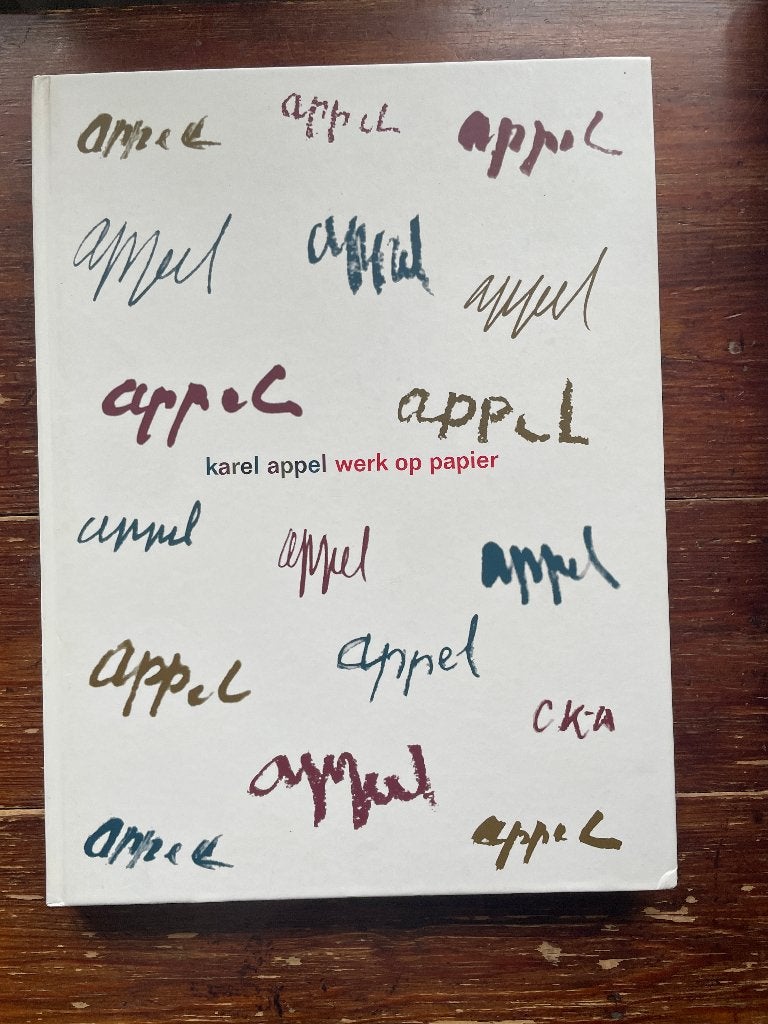 appel appel appel
appel appel appel
appel appel
karel appel werk op papier
appel appel appel
appel appel
CK·A
appel
appel appel